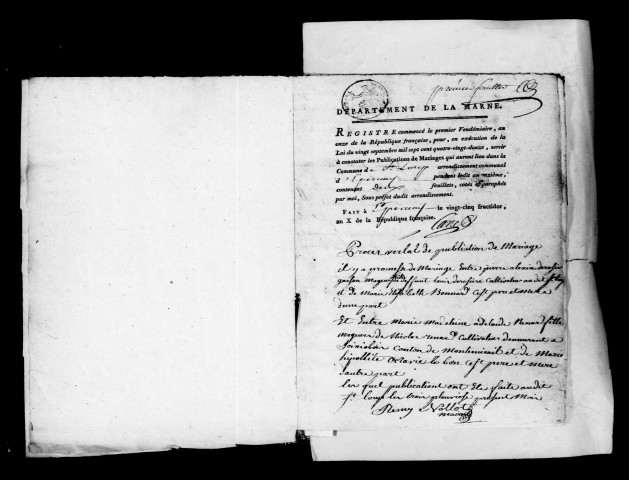 premier feuillet
DÉPARTEMENT DE LA MARNE.
REGISTRE commencé le premier Vendémiaire, an
onze de la République française, pour, en exécution de la
Loi du vingt septembre mil sept cent quatre-vingt-douze, servir
à constater les Publications de Mariages qui auront lieu dans la
Commune d St Loup arrondissement communal
d'Epernay pendant ledit an onzième,
contenant deux feuillets, cotés et paraphés
par moi, Sous-préfet dudit arrondissement.
FAIT à Epernay le vingt-cinq fructidor,
an X de la République française.
Procès verbal de publication de Mariage
il y a promesse de Mariage Entre pierre
garçon Cultivateur audit St Loup
et de Marie Elisabeth Bonnard ces pere et mere
d'une part
Et Entre Marie Madelaine adelaide Renard fille
majeure de Nicolas Cultivateur demeurant a
canton de Montmirail et de Marie
hypollite octavie le bon ces pere et mere
d'autre part
les quel publications ont Eté faite audit
St loup les trois pluviose present Mois
Remy L Vallot